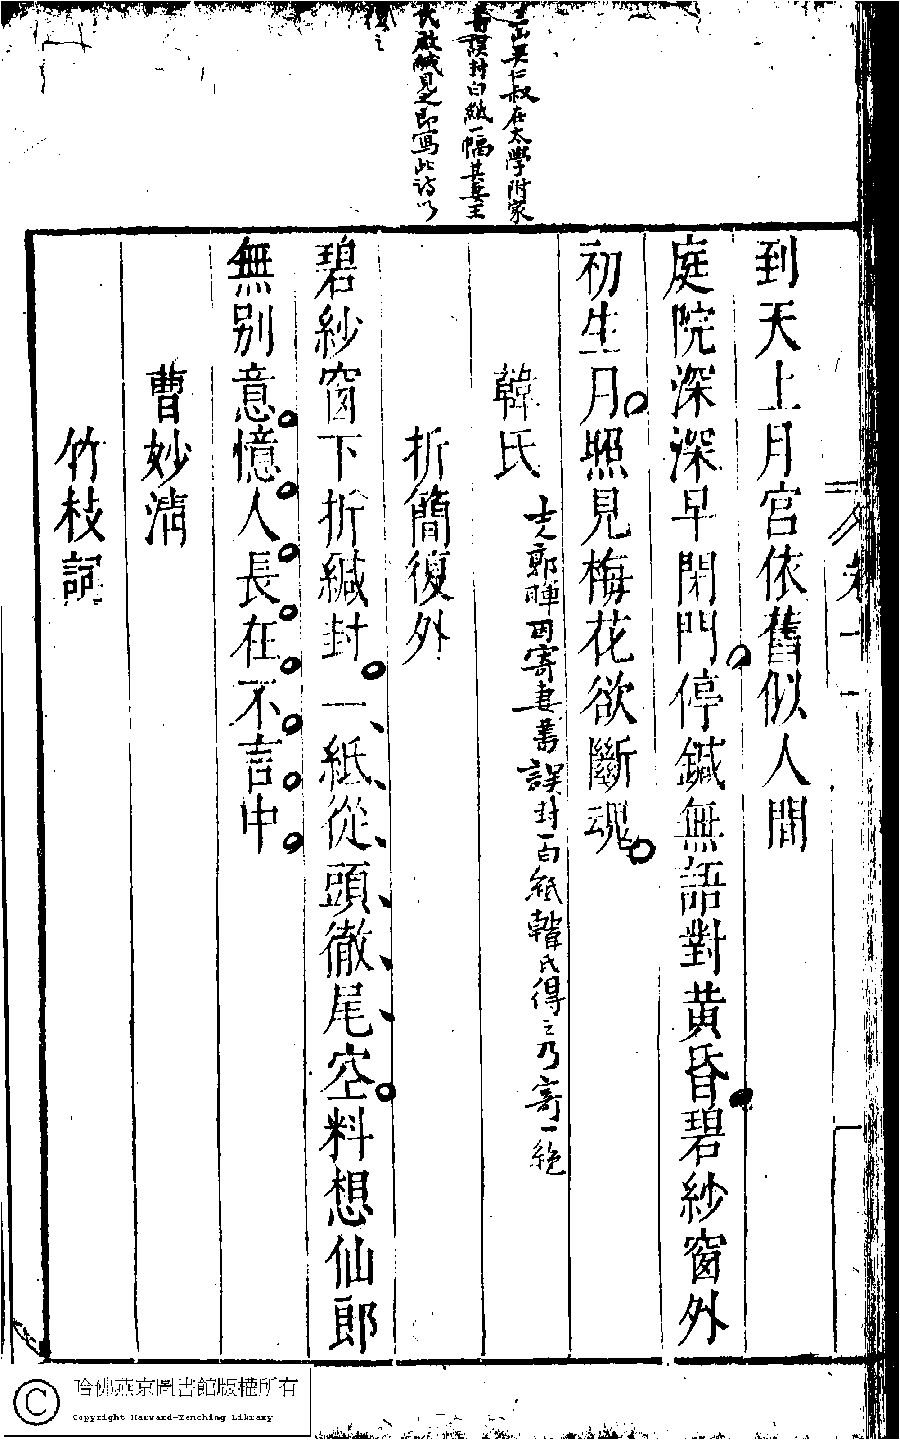 吳仁叔在太學附家
書誤封白紙一幅其妻王
氏啟緘見之即寫此詩以
復之
到天上月宮依舊似人間
庭院深深早閉門停鍼無語對黃昏碧紗窗外
初生月照見梅花欲斷魂
韓氏
士人郭暉因寄妻書誤封一白紙韓氏得之乃寄一絕
折簡復外
碧紗窗下拆緘封一紙從頭徹尾空料想仙郎
無別意憶人長在不言中
曹妙清
竹枝詞
哈佛燕京圖書館版權所有
Copyright Harvard-Yenching Library